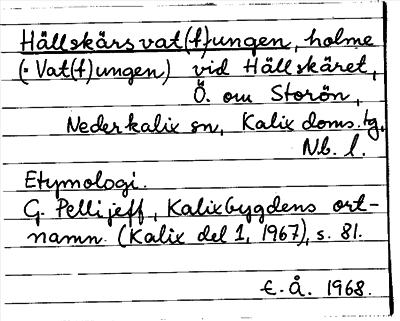 Hällskärsvat(t)ungen, holme
(: Vat(t)ungen) vid Hällskäret,
Ö. om Storön,
Nederkalix sn, Kalix doms.tg,
Nb. l.
Etymologi.
G. Pellijeff, Kalixbygdens ort-
namn. (Kalix del 1, 1967), s. 81.
E.Å. 1968.